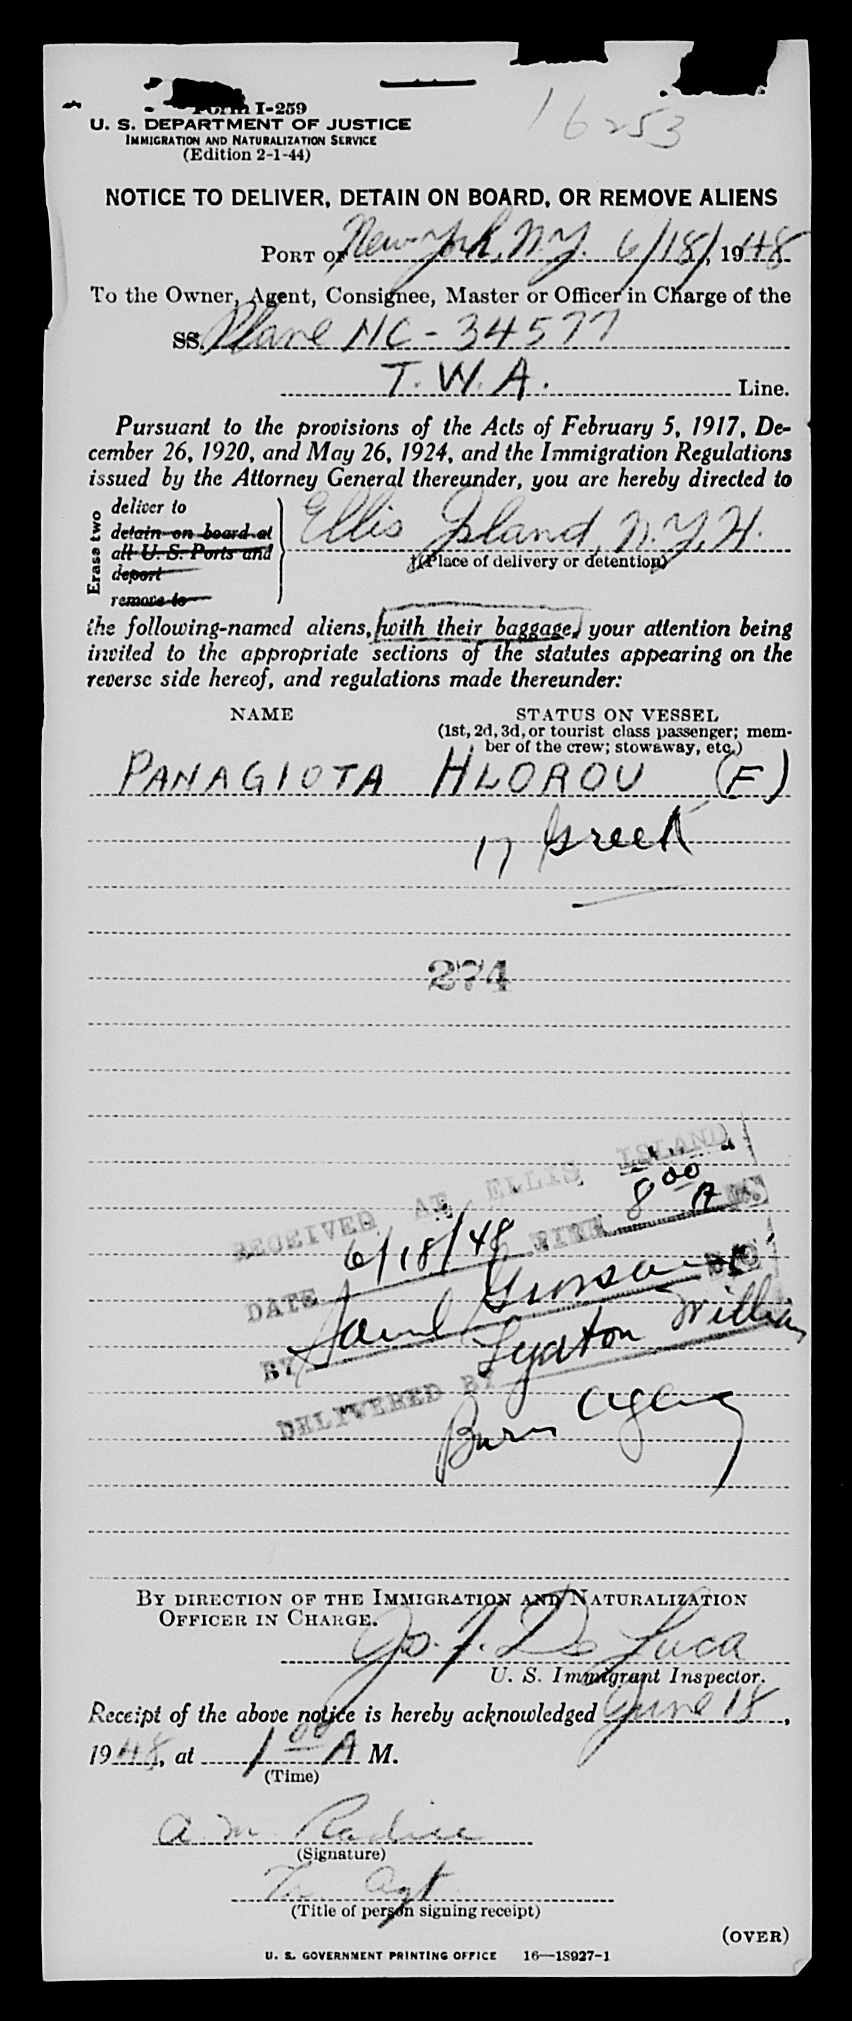 16253
Form I-259
U. S. DEPARTMENT OF JUSTICE
IMMIGRATION AND NATURALIZATION SERVICE
(Edition 2-1-44)
NOTICE TO DELIVER, DETAIN ON BOARD, OR REMOVE ALIENS
PORT OF New York, N.Y. 6/18/, 1948
To the Owner, Agent, Consignee, Master or Officer in Charge of the
SS. Plane NC-34577
T.W.A. Line.
Pursuant to the provisions of the Acts of February 5, 1917, De-
cember 26, 1920, and May 26, 1924, and the Immigration Regulations
issued by the Attorney General thereunder, you are hereby directed to
Erase two
deliver to
detain on board at
all U. S. Ports and
deport
remove to
Ellis Island, N.Y.H.
(Place of delivery or detention)
the following-named aliens, (with their baggage) your attention being
invited to the appropriate sections of the statutes appearing on the
reverse side hereof, and regulations made thereunder:
NAME STATUS ON VESSEL
(1st, 2d, 3d, or tourist class passenger; mem-
ber of the crew; stowaway, etc.)
PANAGIOTA HLOROU (F)
17 Greek
274
RECEIVED AT ELLIS ISLAND
DATE 6/18/48 TIME 8 00 A M.
BY
DELIVERED BY
Burns Agency
BY DIRECTION OF THE IMMIGRATION AND NATURALIZATION
OFFICER IN CHARGE.
Jo. F. De Luca
U. S. Immigrant Inspector.
Receipt of the above notice is hereby acknowledged June 18,
1948, at 1 00 A M.
(Time)
A. M.
(Signature)
Agt
(Title of person signing receipt)
(OVER)
U. S. GOVERNMENT PRINTING OFFICE 16—18927-1